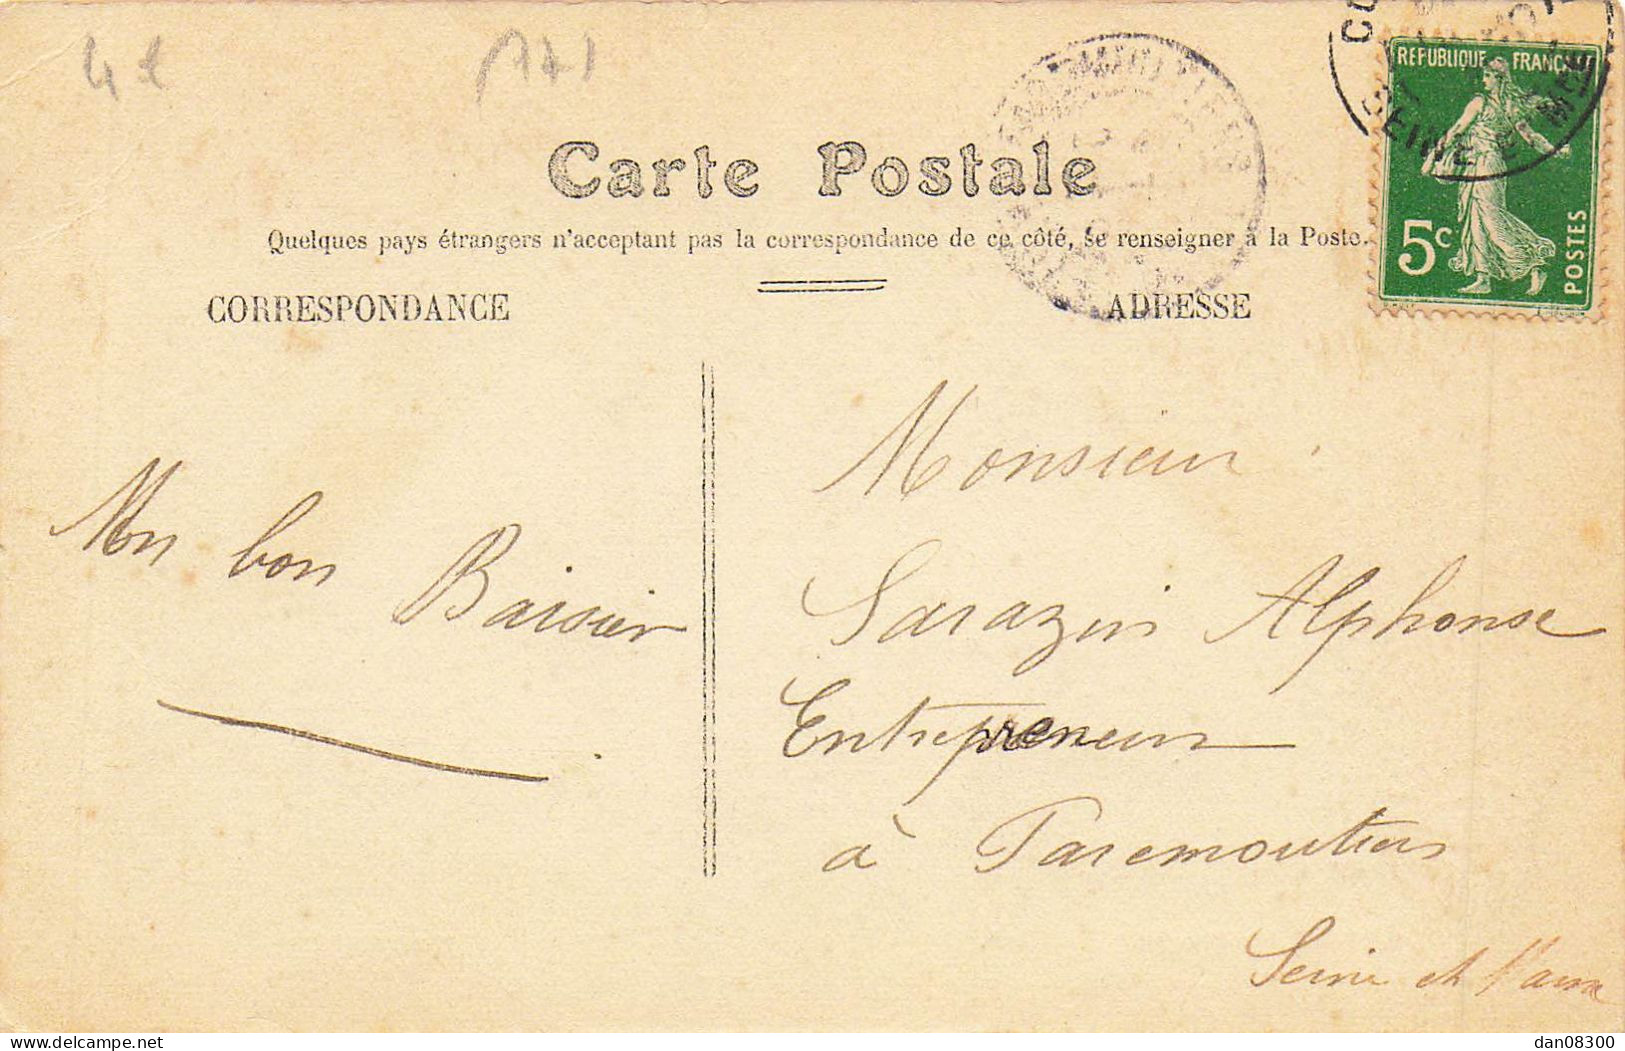 4 t
Carte Postale
Quelques pays étrangers n'acceptant pas la correspondance de ce côté, se renseigner à la Poste.
CORRESPONDANCE
ADRESSE
REPUBLIQUE FRANÇAISE
5c
POSTES
SEINE ET M
Mon bon Baisier
Monsieur
Sarazin Alphonse
Entrepreneur
à Faremoutiers
Seine et Marne
delcampe.net
dan08300